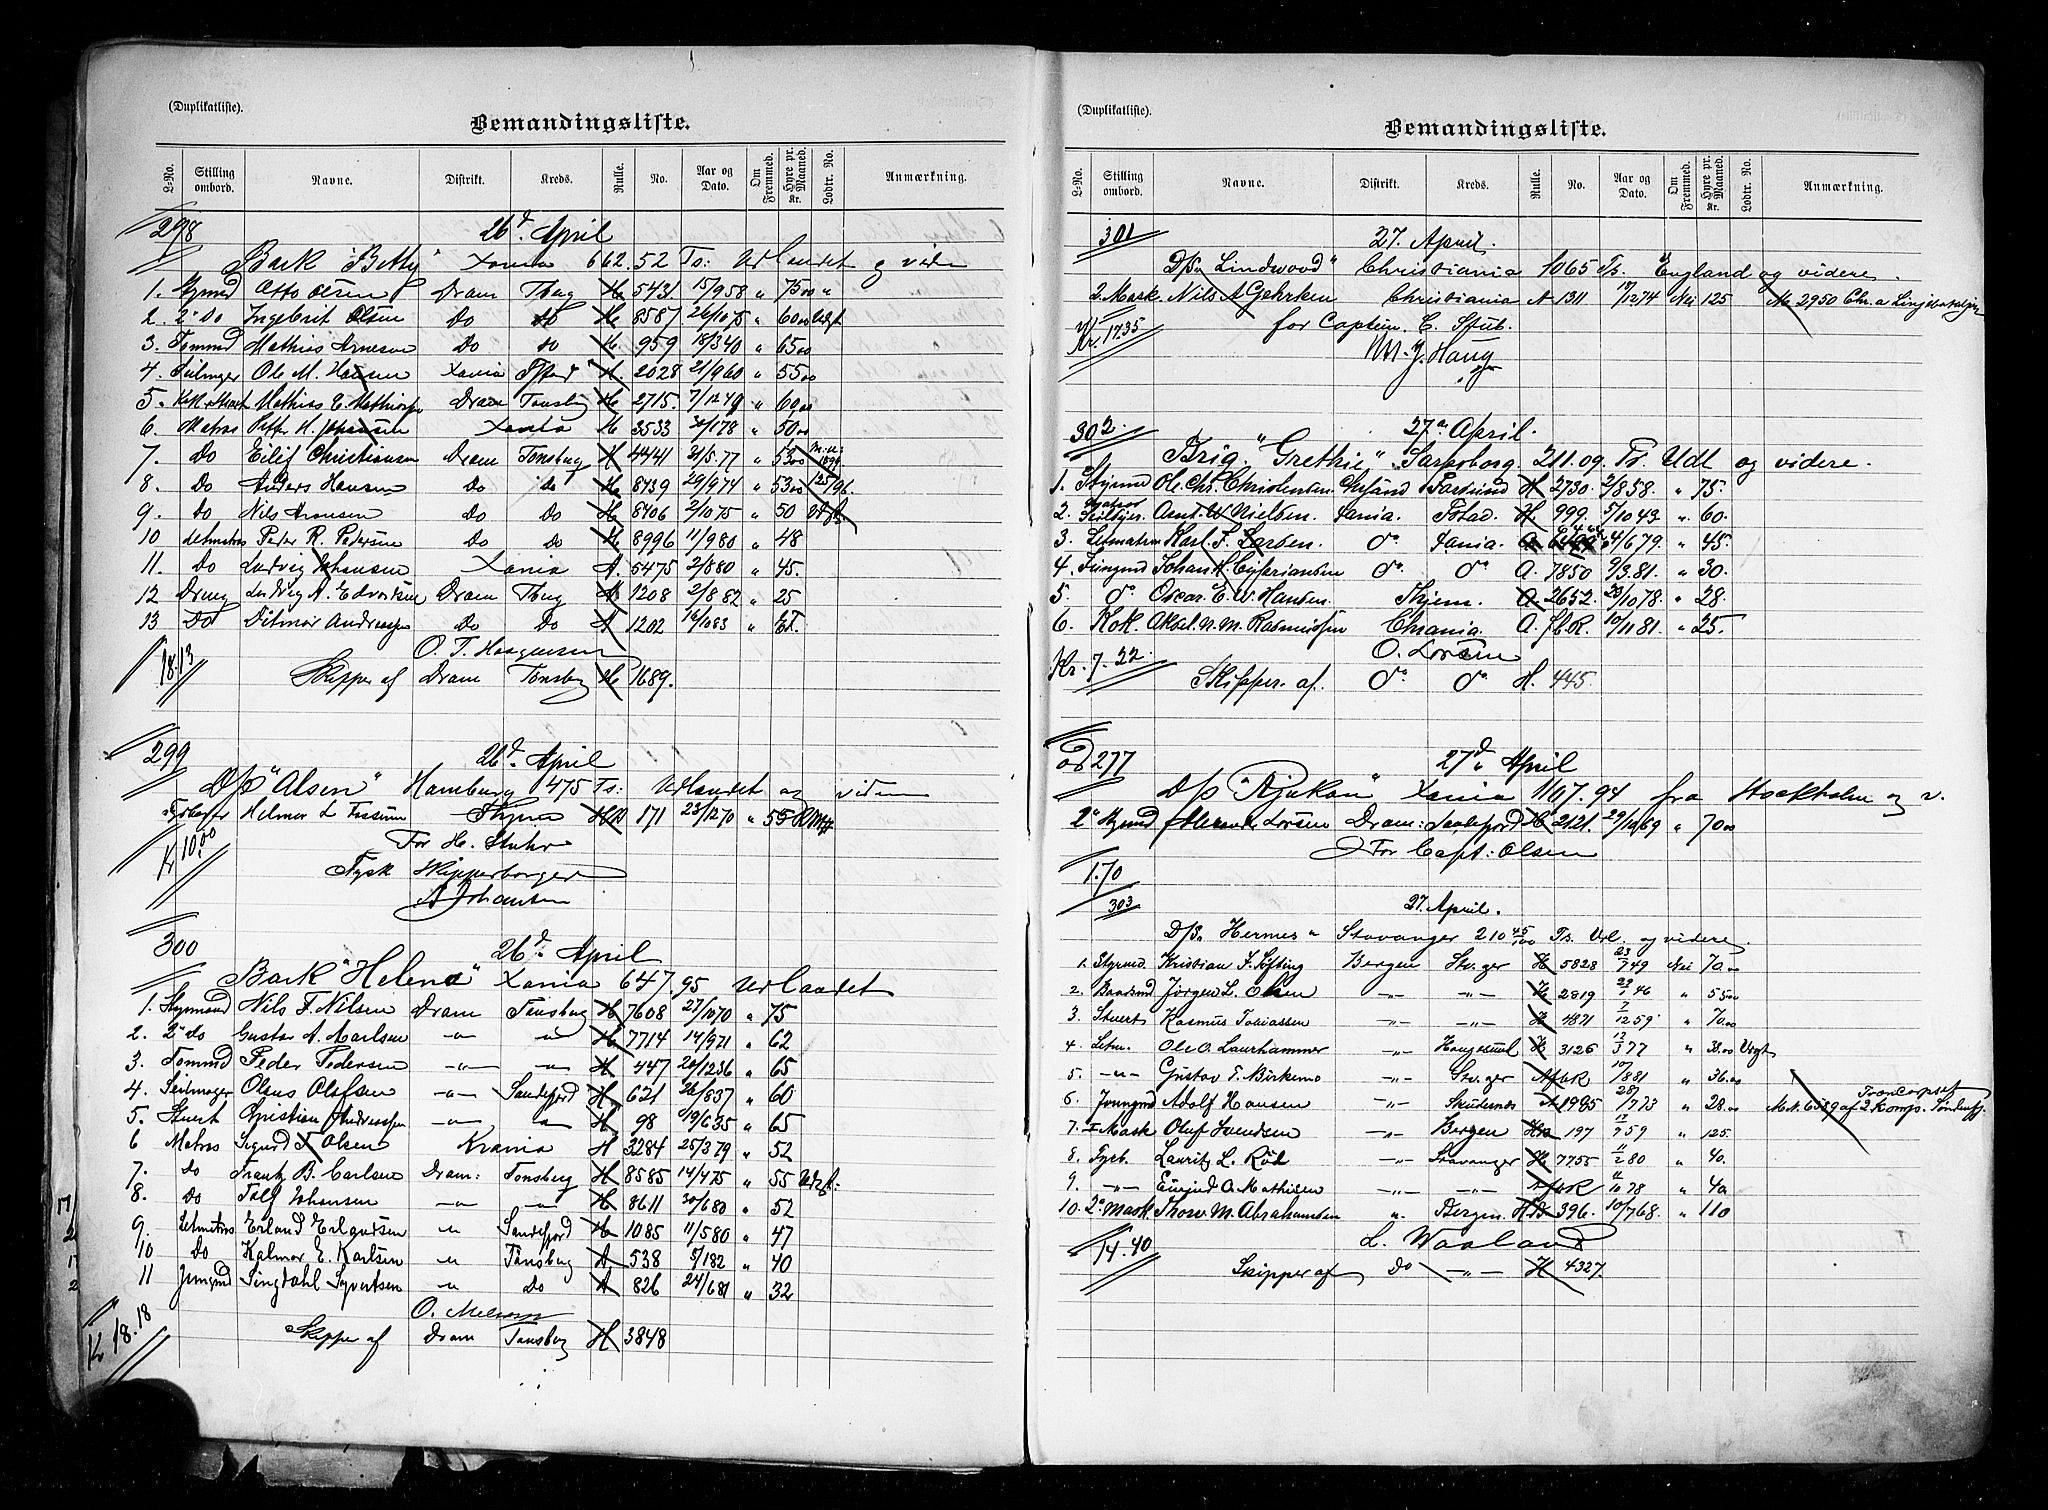 (Duplikatliste).
Bemandingsliste.
L-No. Stilling ombord. Navne. Distrikt. Kreds. Rulle. No. Aar og Dato. Om Fremmed. Hyre pr. Maaned. Kr. Lodtr. No. Anmærkning.
298 26d April
Bark "Betty" Xania 662.52 Ts: Udlandet og viden
1. Stymd Otto Olsen Dram Tbug H 5431 15/9 58 " 75 00 "
2. 2' Do Ingebrit Olsen Do do H 8587 26/10 75 " 60 00 Udsft
3. Tømmd Mathias Arnesen Do do H. 959 18/3 40 " 65 00
4. Seilmager Ole M. Hansen Xania H. 2028 21/9 60 " 55 00
5. Mathias E. Dram Tonsbg H 2715. 7/12 49 " 60 00
6. Matros Petter H. Johansen Xania H 3533 30/1 78 " 50 00
7. Do Eilif Christiansen Dram Tonsberg A 4441 21/5 77 " 53 00
8. Do Anders Hansen Do Do H 8739 29/9 74 " 53 00 125/96.
9. Do Nils Aronsen Do Do H 8706 2/10 75 " 50 Udsft
10 Letmatros Peder R. Pedersen Do Do H 8996 11/9 80 " 48
11. Do Ludvig Johansen Xania A. 5475 2/8 80 " 45.
12 Dreng Ludvig A. Edvardsen Dram Tbug A 1208 2/8 82 " 25
13 Do Ditmar Andreassen Do Do A 1202 16/10 83 "
O. T. Haagensen
18.13 Skipper af Dram Tonsberg H 1689.
299 26d April
D/S "Alsen" Hamburg 475 Ts: Udlandet og viden
Fyrbøter Helmer L Fossum HB 171 23/12 70 " 55
Kr 10.00 For H. Stuhr
Tysk Skipperborger
A Johansen
300 26d April
Bark "Helene" Xania 647.95 Udlandet
1. Styrmand Nils F. Nilsen Dram Tønsberg H 7608 27/10 70 " 75
2. 2' do Gustav A. Karlsen -"- " H 7714 14/9 71 " 62
3. Tømmd Peder Pedersen -"- " H 447 20/12 36 " 65
4. Seilmager Olaus Olafsen -"- Sandefjord H. 621 26/8 37 " 60
5. Stuert Christian Andreassen -"- " H 98 19/6 35 " 65
6 Matros Sigurd T Olsen Krania H 3284 25/3 79 " 52
7. Do Frantz B. Carlsen Dram: Tonsberg H 8585 14/4 75 " 55 Udsft:
8. Do Tolf Johansen -"- " H 8611 30/6 80 " 52
9. Letmatros Erland Erlandsen " Sandefjord H 1085 11/5 80 " 47
10 Do Kalmar E. Karlsen " Tønsberg A 538 5/1 82 " 40
11 Jungmd Singdahl Syvertsen " Do A 826 24/6 81 " 32
O. Nielsen
Kr 18.18 Skipper af Dram Tønsberg H 3848
(Duplikatliste).
Bemandingsliste.
L-No. Stilling ombord. Navne. Distrikt. Kreds. Rulle. No. Aar og Dato. Om Fremmed. Hyre pr. Maaned. Kr. Lodtr. No. Anmærkning.
301 27. April.
D/S "Lindwood" Christiania 1065 Ts. England og videre.
2. Mask. Nils A Gehrken Christiania A 1311 17/12 74 Nei 125 No 2950 Chr.a
Kr. 17.35 for Captein C. Stub.
M. J. Haug
302. 27de April.
Brig. "Grethe" Sarpsborg 211.09. Ts. Udl og videre.
1. Styrmd Ole Chr. Christensen Chrsand Farsund H 2730 2/8 58. " 75.
2. Matros Seilskjer. Arnt. W. Nielsen. Xania. Fstad. H. 999. 5/10 43 " 60.
3. Letmatros Karl F. Larsen. do Xania. A 4/6 79. " 45.
4. Jungmd Johan H. Cypriansen do do A. 1850 9/3 81. " 30.
5. do Oscar E. W. Hansen. Thjem. A. 2652. 23/10 78. " 28.
6. Kok. Aksel N. M. Rasmussen Chrania. A. f.b.R. 10/11 81. " 25.
O. Larsen
Kr. 7.22. Skipper. af. do do H. 445.
ad 277 27d April
D/s "Rjukan" Xania 1107.94 fra Stockholm og v.
2' Stymd Larsen Dram: Sandefjord H 2121 29/10 69 " 70 00
For Capt: Olsen
1.70
303 27. April.
D/S. Hermes " Stavanger 210 45/100 Ts. Udl. og videre.
1. Styrmd. Kristian F. Løfting Bergen Stv.ger H 5828 23/7 49 Nei 70.00
2. Baadsmd Jørgen L. Olsen -"- -"- H 2819 23/1 46 " 55.00
3. Stuert Rasmus Tobiassen -"- -"- H 4871 2/12 59 " 70.00
4. Letm. Ole O. Laurhammer -"- Haugesund H 3126 12/3 77 " 38.00 Udsgt
5. -"- Gustav T. Birkemo -"- Stv.ger A fbR 10/8 81 " 36.00
6. Jungmd Adolf Hansen -"- Skudesnæs A 1985 28/1 73 " 28.00 M.N. 6589 af 2 Komps. Søndenfj. Trancorpset
7. 1 Mask Oluf Svendsen -"- Bergen HB 197 12/9 59 " 125.
8. Fyrb. Lauritz L. Röd -"- Stavanger H 7755 11/2 80 " 40.
9. -"- Eivind O. Mathisen -"- -"- A fbR 11/10 78 " 40
10. 2' Mask. Thorv. M. Abrahamsen " Bergen. HB 396. 10/7 68. " 110
L. Waaland
14.40 Skipper af Do -"- H 4327.